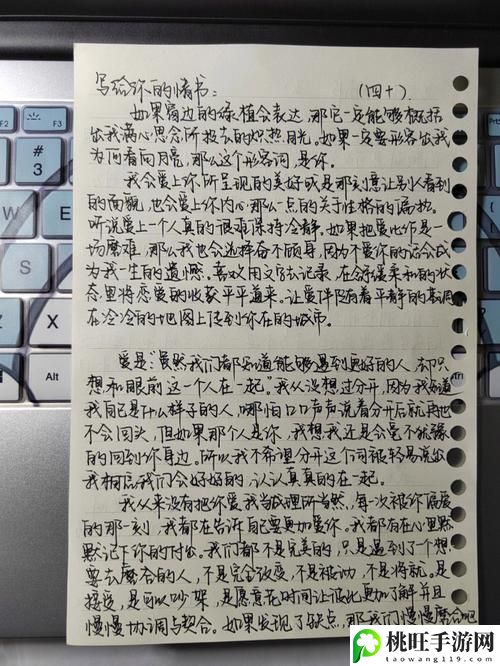 写给你的情书： （四十）
如果窗边的绿植会表达，那它一定能够概括
出我满心思念所投去的炽热目光。如果一定要形容出我
为何看向月亮，那么这个形容词，是你。
我会爱上你所呈现的美好或是那刻意让别人看到
的面貌，也会爱上你内心那么一点的关于性格的偏执。
听说爱上一个人真的很难保持冷静，如果把爱比作是一
场磨难，那么我也会选择奋不顾身，因为不爱你的话会成
为我一生的遗憾。喜欢用文字去记录，在舒缓柔和的状
态里将恋爱的收家平平道来。让爱伴随着平静的基调
在冷冷的地图上传到你在的城市。
爱是：“虽然我们都知道能够遇到更好的人，却只
想和眼前这一个人在一起。”我从没想过分开，因为我知道
我自己是什么样子的人，哪怕口口声声说着分开后就再也
不会回头，但如果那个人是你，我想我还是会毫不犹豫
的回到你身边。所以我不希望分开这个词被轻易说出
我相信我们会好好的，认认真真的在一起。
我从来没有把你爱我当成理所当然，每一次被你偏爱
的那一刻，我都在告诉自己要更加爱你。我都有在心里默
默记下你的付出。我们都不是完美的，只是遇到了个想
要去磨合的人，不是完全改变，不是被动，不是将就。是
接受，是可以吵架，是愿意花时间让彼此更加了解并且
慢慢协调与契合。如果发现了缺点，那我们慢慢磨合吧
F2
F3
#
3
桃旺手游网
taowang119.com